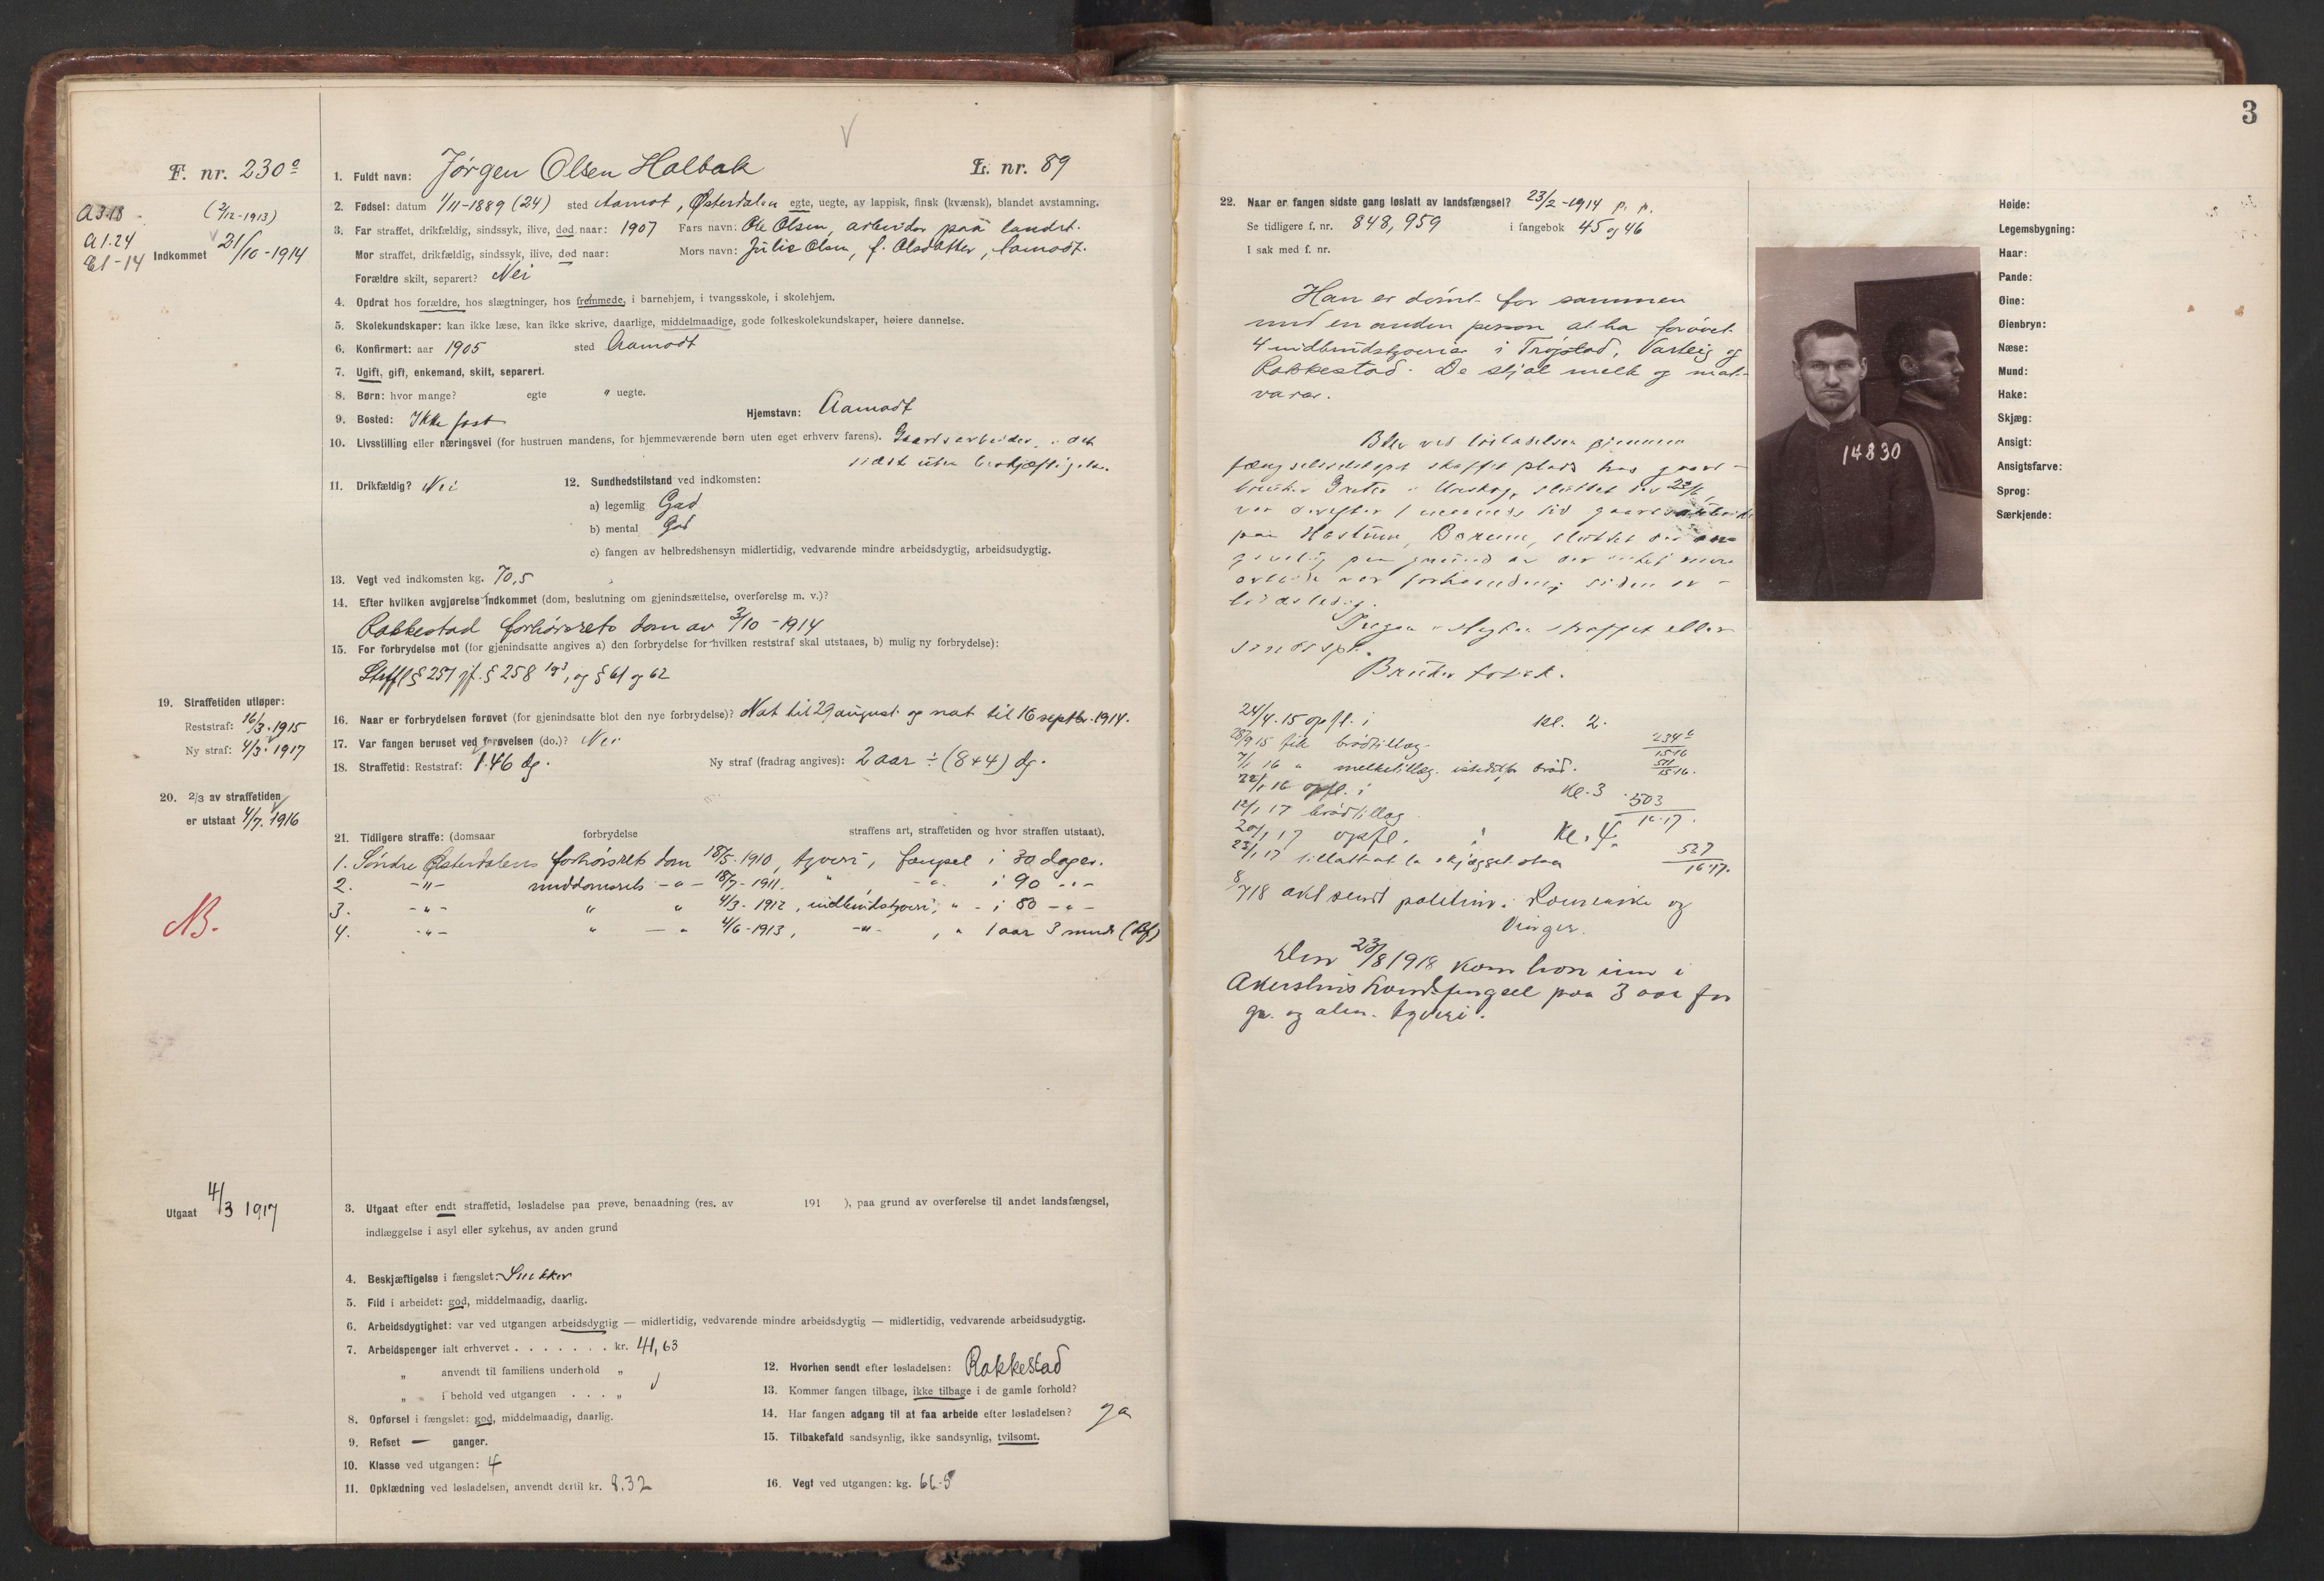 3
F. nr. 230a
1. Fuldt navn: Jørgen Olsen Halbak L. nr. 89
A 3.18
(2/12-1913)
A 1.24
E1-14
Indkommet 21/10-1914
2. Fødsel: datum 1/11-1889 (24) sted Aamot, Østerdalen egte, uegte, av lappisk, finsk (kvænsk), blandet avstamning.
3. Far straffet, drikfældig, sindssyk, ilive, død naar: 1907 Fars navn: Ole Olsen, arbeider paa landet.
Mor straffet, drikfældig, sindssyk, ilive, død naar: Mors navn: Julie Olsen, f. Olsdatter, Aamodt.
Forældre skilt, separert? Nei
4. Opdrat hos forældre, hos slægtninger, hos fremmede, i barnehjem, i tvangsskole, i skolehjem.
5. Skolekundskaper: kan ikke læse, kan ikke skrive, daarlige, middelmaadige, gode folkeskolekundskaper, høiere dannelse.
6. Konfirmert: aar 1905 sted Aamodt
7. Ugift, gift, enkemand, skilt, separert.
8. Børn: hvor mange? egte " uegte.
9. Bosted: Ikke fast Hjemstavn: Aamodt
10. Livsstilling eller næringsvei (for hustruen mandens, for hjemmeværende børn uten eget erhverv farens). Gaardsarbeider, i det
sidste uten beskjæftigelse.
11. Drikfældig? Nei 12. Sundhedstilstand ved indkomsten:
a) legemlig God
b) mental God
c) fangen av helbredshensyn midlertidig, vedvarende mindre arbeidsdygtig, arbeidsudygtig.
13. Vegt ved indkomsten kg. 70,5
14. Efter hvilken avgjørelse indkommet (dom, beslutning om gjenindsættelse, overførelse m. v.)?
Rakkestad forhørsrets dom av 3/10-1914
15. For forbrydelse mot (for gjenindsatte angives a) den forbrydelse for hvilken reststraf skal utstaaes, b) mulig ny forbrydelse):
Strffl § 257 jf. § 258 1, 3, og § 61 og 62
19. Straffetiden utløper:
Reststraf: 16/3-1915
Ny straf: 4/3-1917
16. Naar er forbrydelsen forøvet (for gjenindsatte blot den nye forbrydelse)? Nat til 29 august og nat til 16 septbr. 1914.
17. Var fangen beruset ved forøvelsen (do.)? Nei
18. Straffetid: Reststraf: 146 dg. Ny straf (fradrag angives): 2 aar ÷ (8+4) dg.
20. 2/3 av straffetiden
er utstaat 4/7.1916
21. Tidligere straffe: (domsaar forbrydelse straffens art, straffetiden og hvor straffen utstaat).
1. Søndre Østerdalens forhørsrets dom 18/5-1910, tyveri, fængsel i 30 dager.
2. -"- meddomsrets -"- 18/7-1911. " -"- i 90 -"-
3. -"- " " 4/3-1912, indbrudstyveri, " - i 80 -"-
4. -"- " — " 4/6-1913, -"-, " 1 aar 3 mndr (Bf)
NB.
Utgaat 4/3 1917
3. Utgaat efter endt straffetid, løsladelse paa prøve, benaadning (res. av 191 ), paa grund av overførelse til andet landsfængsel,
indlæggelse i asyl eller sykehus, av anden grund
4. Beskjæftigelse i fængslet: Snekker
5. Flid i arbeidet: god, middelmaadig, daarlig.
6. Arbeidsdygtighet: var ved utgangen arbeidsdygtig — midlertidig, vedvarende mindre arbeidsdygtig — midlertidig, vedvarende arbeidsudygtig.
7. Arbeidspenger ialt erhvervet . . . . . . . kr. 41,63
" anvendt til familiens underhold "
" i behold ved utgangen . . . "
8. Opførsel i fængslet: god, middelmaadig, daarlig.
9. Refset — ganger.
10. Klasse ved utgangen: 4
11. Opklædning ved løsladelsen, anvendt dertil kr. 8.32
12. Hvorhen sendt efter løsladelsen: Rakkestad
13. Kommer fangen tilbage, ikke tilbage i de gamle forhold?
14. Har fangen adgang til at faa arbeide efter løsladelsen? ja
15. Tilbakefald sandsynlig, ikke sandsynlig, tvilsomt.
16. Vegt ved utgangen: kg. 66.5
22. Naar er fangen sidste gang løslatt av landsfængsel? 23/2-1914 p. p.
Se tidligere f. nr. 848, 959 i fangebok 45 og 46
I sak med f. nr.
Han er dømt for sammen
med en anden person at ha forøvet
4 indbrudstyverier i Trøgstad, Varteig og
Rakkestad. De stjal melk og mat-
varer.
Blev ved løsladelsen gjennem
fængselsselskapet skaffet plads hos gaard-
bruker i Urskog, sluttet der
var derefter 1 maaneds tid gaardsarbeider
paa Haslum, Bærum, sluttet der an-
givelig paa grund av der intet mere
arbeide var forhaanden; siden ar-
beidsledig.
Ingen slegtn. straffet eller
sindssyk.
Bruker tobak.
24/4.15 opfl. i Kl. 2.
28/9 15 fik brødtillæg. 234 c/15-16
7/1 16 " melketillæg istedetfor brød. 511/15-16.
22/1 16 opfl. i Kl. 3
12/1 17 brødtillæg 503/16-17.
20/1 17 opfl. i Kl. 4.
23/1 17 tillatt at la skjægget staa 527/16-17.
8/7 18 akt sendt politim. i Romerike og
Vinger.
Den 23/8 1918 kom han inn i
Akershus landsfengsel paa 3 aar for
gr. og alm. tyveri.
14830
Høide:
Legemsbygning:
Haar:
Pande:
Øine:
Øienbryn:
Næse:
Mund:
Hake:
Skjæg:
Ansigt:
Ansigtsfarve:
Sprog:
Særkjende: